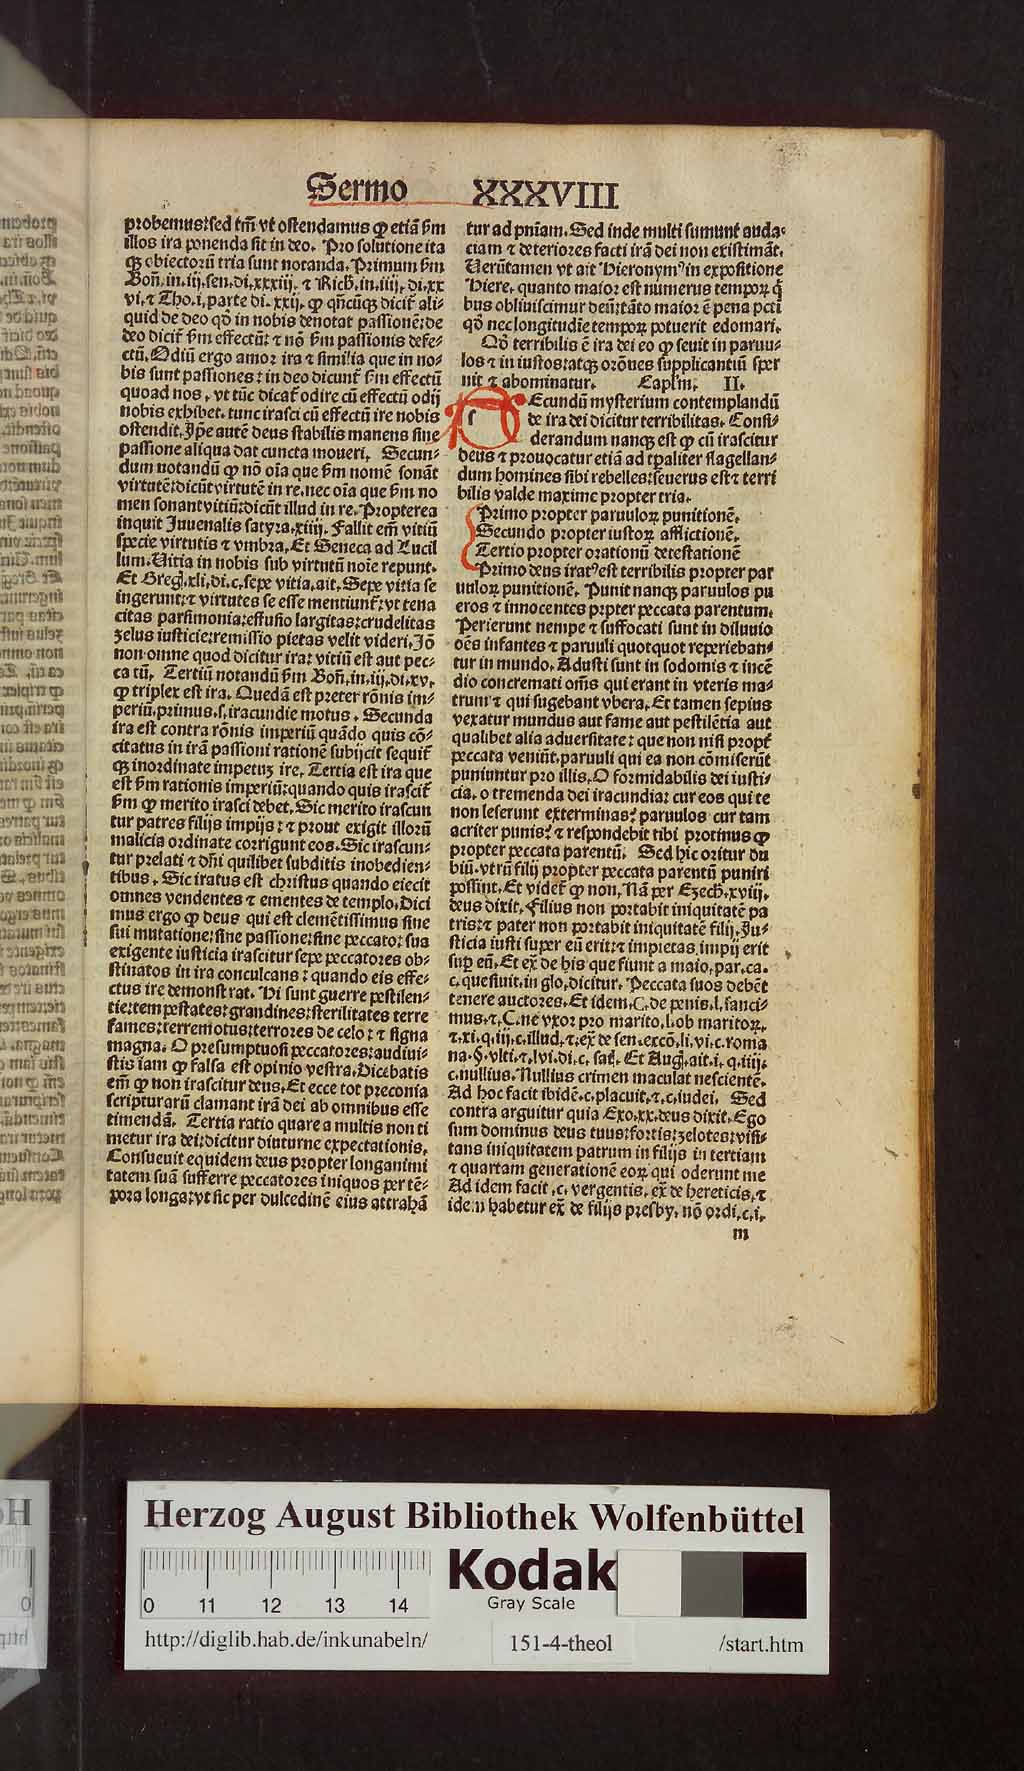 Sermo XXXVIII
probemus: sed tm̄ vt ostendamus ꝙ etiā ẜm
illos ira ponenda sit in deo. Pro solutione ita
qꝫ obiectorū tria sunt notanda. Primum ẜm
Boñ. in. iij. sen. di. xxxiij. ⁊ Rich. in. iiij. di. xx
vi. ⁊ Tho. i. parte di. xxij. ꝙ qn̄cūqꝫ dicit̄ ali-
quid de deo qd̄ in nobis denotat passionē: de
deo dicit̄ ẜm effectū: ⁊ nō ẜm passionis defe-
ctū. Odiū ergo amor ira ⁊ similia que in no-
bis sunt passiones: in deo dicunt̄ ẜm effectū
quoad nos. vt tūc dicat̄ odire cū effectū odij
nobis exhibet. tunc irasci cū effectū ire nobis
ostendit. Ip̄e autē deus stabilis manens sine
passione aliqua dat cuncta moueri. Secun-
dum notandū ꝙ nō oīa que ẜm nomē sonāt
virtutē: dicūt virtutē in re. nec oīa que ẜm no
men sonant vitiū: dicūt illud in re. Propterea
inquit Juuenalis satyra. xiiij. Fallit em̄ vitiū
specie virtutis ⁊ vmbra. Et Seneca ad Lucil
lum. Vitia in nobis sub virtutū noīe repunt.
Et Greg. xli. di. c. sepe vitia. ait. Sepe vitia se
ingerunt: ⁊ virtutes se esse mentiunt̄: vt tena
citas parsimonia: effusio largitas: crudelitas
zelus iusticie: remissio pietas velit videri. Jō
non omne quod dicitur ira: vitiū est aut pec-
ca tū. Tertiū notandū ẜm Boñ. in. iij. di. xv.
ꝙ triplex est ira. Quedā est preter rōnis im-
periū. primus. s. iracundie motus. Secunda
ira est contra rōnis imperiū quādo quis cō-
citatus in irā passioni rationē subijcit sequit̄
qꝫ inordinate impetuꝫ ire. Tertia est ira que
est ẜm rationis imperiū: quando quis irascit̄
ẜm ꝙ merito irasci debet. Sic merito irascun
tur patres filijs impijs: ⁊ prout exigit illorū
malicia ordinate corrigunt eos. Sic irascun-
tur prelati ⁊ dn̄i quilibet subditis inobedien-
tibus. Sic iratus est christus quando eiecit
omnes vendentes ⁊ ementes de templo. Dici
mus ergo ꝙ deus qui est clemētissimus sine
sui mutatione: sine passione: sine peccato: sua
exigente iusticia irascitur sepe peccatores ob-
stinatos in ira conculcans: quando eis effe-
ctus ire demonst rat. Hi sunt guerre pestilen-
tie: tempestates: grandines: sterilitates terre
fames: terremotus: terrores de celo: ⁊ signa
magna. O presumptuosi peccatores: audiui-
stis iam ꝙ falsa est opinio vestra. Dicebatis
em̄ ꝙ non irascitur deus. Et ecce tot preconia
scripturarū clamant irā dei ab omnibus esse
timendā. Tertia ratio quare a multis non ti
metur ira dei: dicitur diuturne expectationis.
Consueuit equidem deus propter longanimi
tatem suā sufferre peccatores iniquos per tē-
pora longa: vt sic per dulcedinē eius attrahā
tur ad pn̄iam. Sed inde multi sumunt auda-
ciam ⁊ deteriores facti irā dei non existimāt.
Verūtamen vt ait Hieronymꝰ in expositione
Hiere. quanto maior est numerus temporꝝ q̄
bus obliuiscimur deū: tāto maior ē pena pctī
qd̄ nec longitudīe temporꝝ potuerit edomari.
Qd̄ terribilis ē ira dei eo ꝙ seuit in paruu-
los ⁊ in iustos: atqꝫ orōnes supplicantiū sper
nit ⁊ abominatur. Capl̄m. II.
s Ecundū mysterium contemplandū
de ira dei dicitur terribilitas. Consi-
derandum nanqꝫ est ꝙ cū irascitur
deus ⁊ prouocatur etiā ad tꝑaliter flagellan-
dum homines sibi rebelles: seuerus est ⁊ terri
bilis valde maxime propter tria.
Primo propter paruulorꝝ punitionē.
Secundo propter iustorꝝ afflictionē.
Tertio propter orationū detestationē
Primo deus iratꝰ est terribilis propter par
uulorꝝ punitionē. Punit nanqꝫ paruulos pu
eros ⁊ innocentes ꝓpter peccata parentum.
Perierunt nempe ⁊ suffocati sunt in diluuio
oēs infantes ⁊ paruuli quotquot reperieban-
tur in mundo. Adusti sunt in sodomis ⁊ incē
dio concremati om̄s qui erant in vteris ma-
trum ⁊ qui sugebant vbera. Et tamen sepius
vexatur mundus aut fame aut pestilētia aut
qualibet alia aduersitate: que non nisi propt̄
peccata veniūt. paruuli qui ea non cōmiserūt
puniuntur pro illis. O formidabilis dei iusti-
cia. o tremenda dei iracundia: cur eos qui te
non leserunt exterminas? paruulos cur tam
acriter punis? ⁊ respondebit tibi protinus ꝙ
propter peccata parentū. Sed hic oritur du
biū. vtrū filij propter peccata parentū puniri
possint. Et videt̄ ꝙ non. Nā per Ezech. xviij.
deus dixit. Filius non portabit iniquitatē pa
tris: ⁊ pater non portabit iniquitatē filij. Ju-
sticia iusti super eū erit: ⁊ impietas impij erit
suꝑ eū. Et ex̄ de his que fiunt a maio. par. ca.
c. quesiuit. in glo. dicitur. Peccata suos debēt
tenere auctores. Et idem. C. de penis. l. sanci-
mus. ⁊. C. ne vxor pro marito. l. ob maritorꝝ.
⁊. xi. q. iij. c. illud. ⁊. ex̄ de sen. excō. li. vi. c. roma
na. §. vlti. ⁊. lvi. di. c. sat̄. Et Aug. ait. i. q. iiij.
c. nullius. Nullius crimen maculat nescientē.
Ad hoc facit ibidē. c. placuit. ⁊. c. iudei. Sed
contra arguitur quia Exo. xx. deus dixit. Ego
sum dominus deus tuus: fortis: zelotes: visi-
tans iniquitatem patrum in filijs in tertiam
⁊ quartam generationē eorꝝ qui oderunt me
Ad idem facit. c. vergentis. ex̄ de hereticis. ⁊
idem habetur ex̄ de filijs presby. nō ordi. c. i.
m
Herzog August Bibliothek Wolfenbüttel
0 11 12 13 14
Kodak
Gray Scale
http://diglib.hab.de/inkunabeln/
151-4-theol
/start.htm